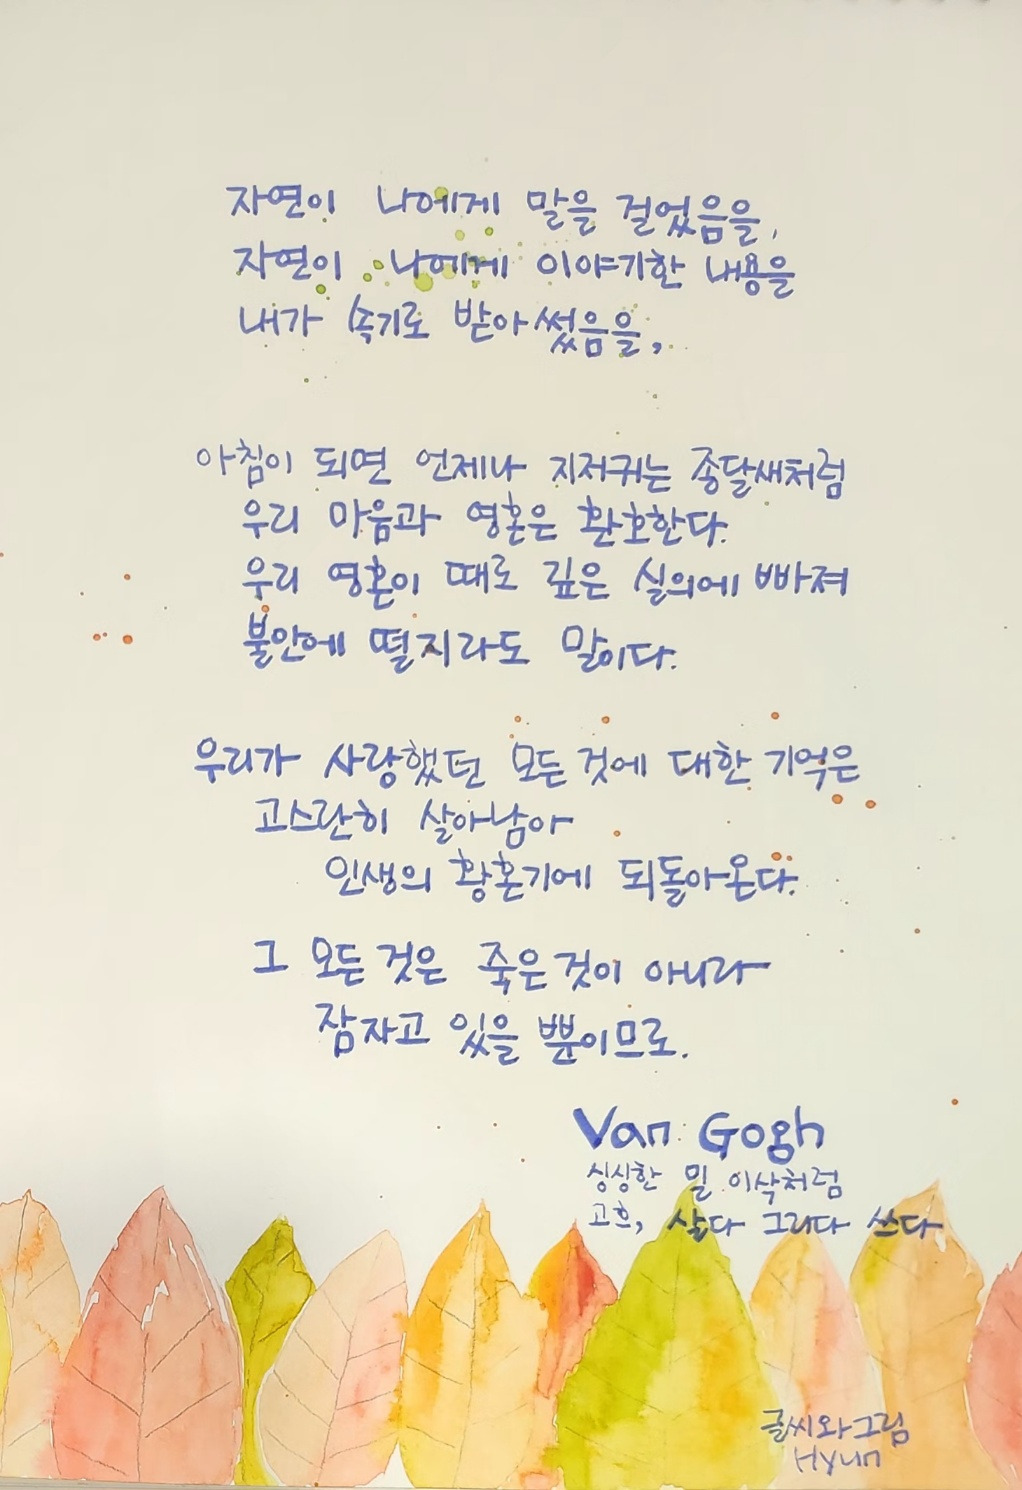 자연이 나에게 말을 걸었음을,
자연이 나에게 이야기한 내용을
내가 속기로 받아썼음을,
아침이 되면 언제나 지저귀는 종달새처럼
우리 마음과 영혼은 환호한다.
우리 영혼이 때로 깊은 실의에 빠져
불안에 떨지라도 말이다.
우리가 사랑했던 모든 것에 대한 기억은
고스란히 살아남아
인생의 황혼기에 되돌아온다.
그 모든 것은 죽은 것이 아니라
잠자고 있을 뿐이므로.
Van Gogh
싱싱한 밀 이삭처럼
고흐, 살다 그리다 쓰다
글씨와 그림
Hyun